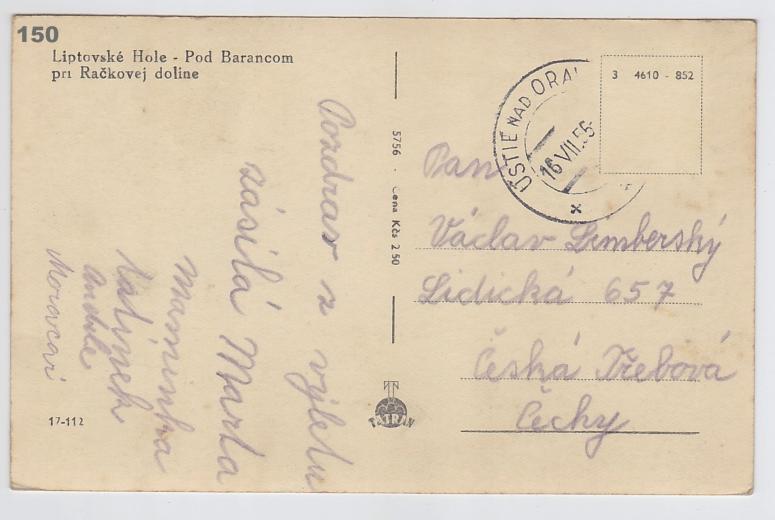 150
Liptovské Hole - Pod Barancom
pri Račkovej doline
Pozdrav z výletu
zásilá Marta
maminka
tatínek
Moravcovi
5756 - Cena Kčs 2·50
17-112
TATRAN
ÚSTIE NAD ORA
16.VII.56
3 4610 - 852
Pan
Václav Šemberský
Lidická 657
Česká Třebová
Čechy